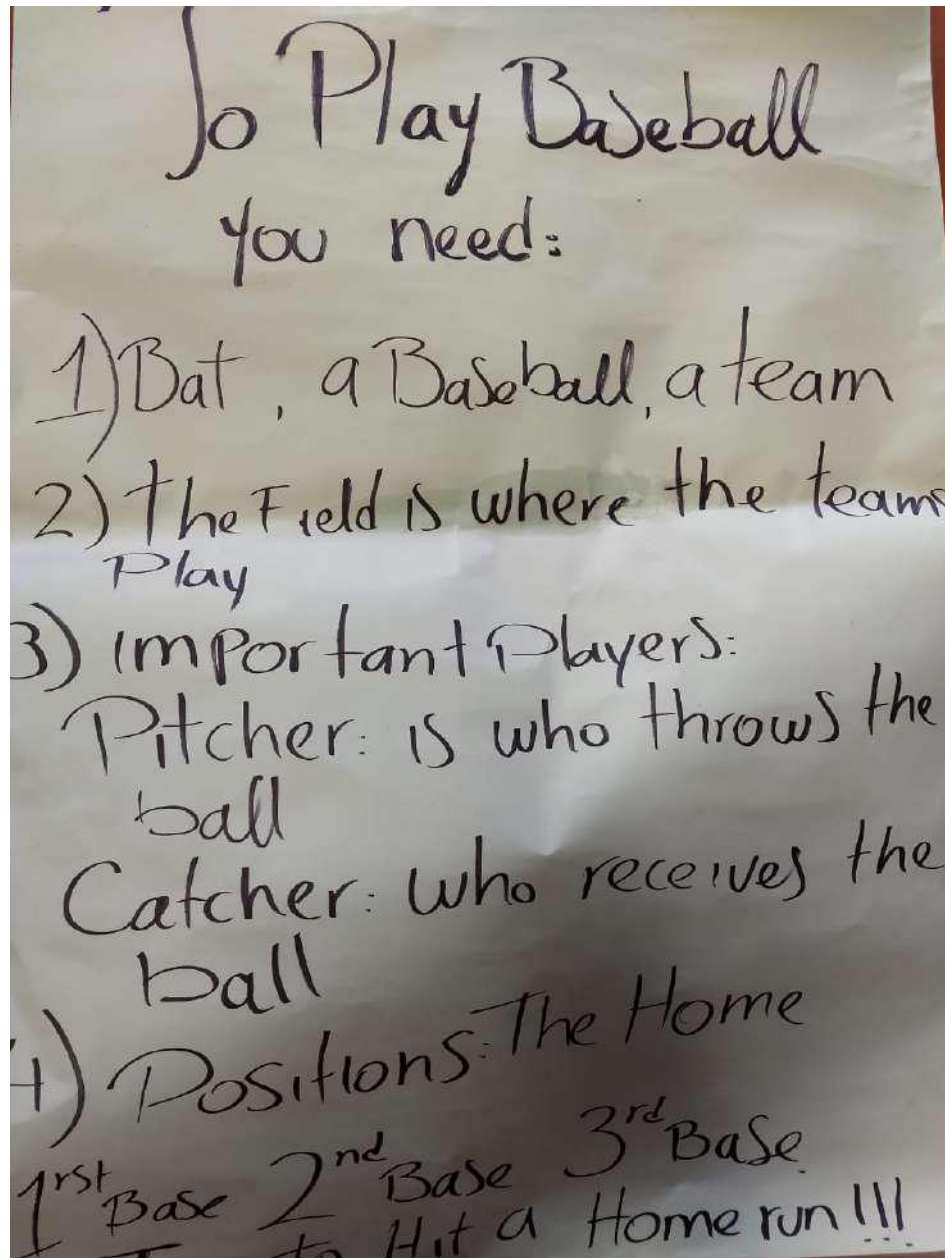 To Play Baseball
you need:
1) Bat, a Baseball, a team
2) The Field is where the teams
Play
3) important Players:
Pitcher: is who throws the
ball
Catcher: who receives the
ball
4) Positions: The Home
1rst Base 2nd Base 3rd Base
to Hit a Home run!!!